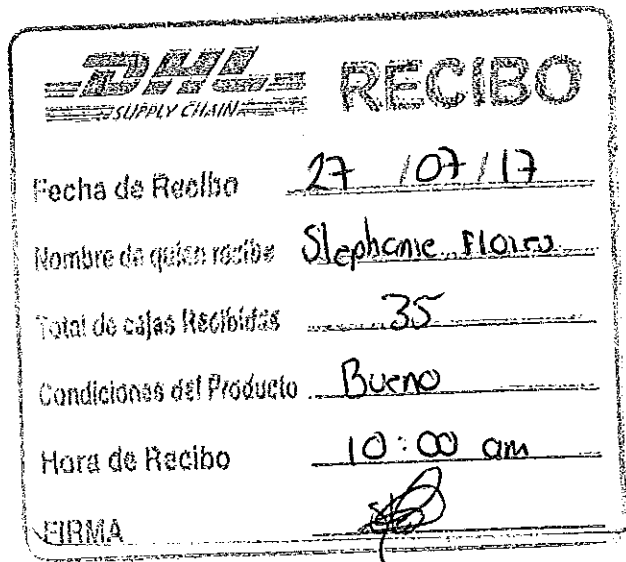 DHL RECIBO
SUPPLY CHAIN
Fecha de Recibo 27 / 07 / 17
Nombre de quien recibe Stephanie Flores
Total de cajas Recibidas 35
Condiciones del Producto Bueno
Hora de Recibo 10:00 am
FIRMA